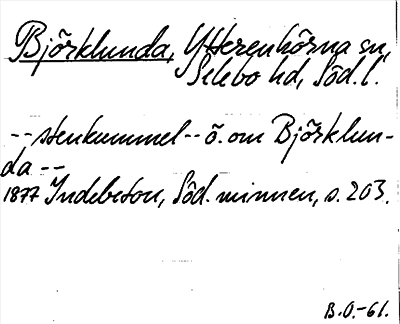 Björklunda, Ytterenhörna sn,
Selebo hd, Söd. l.
-- stenkummel -- ö. om Björklun-
da --
1877 Indebetou, Söd. minnen, s. 203.
B.O.-61.